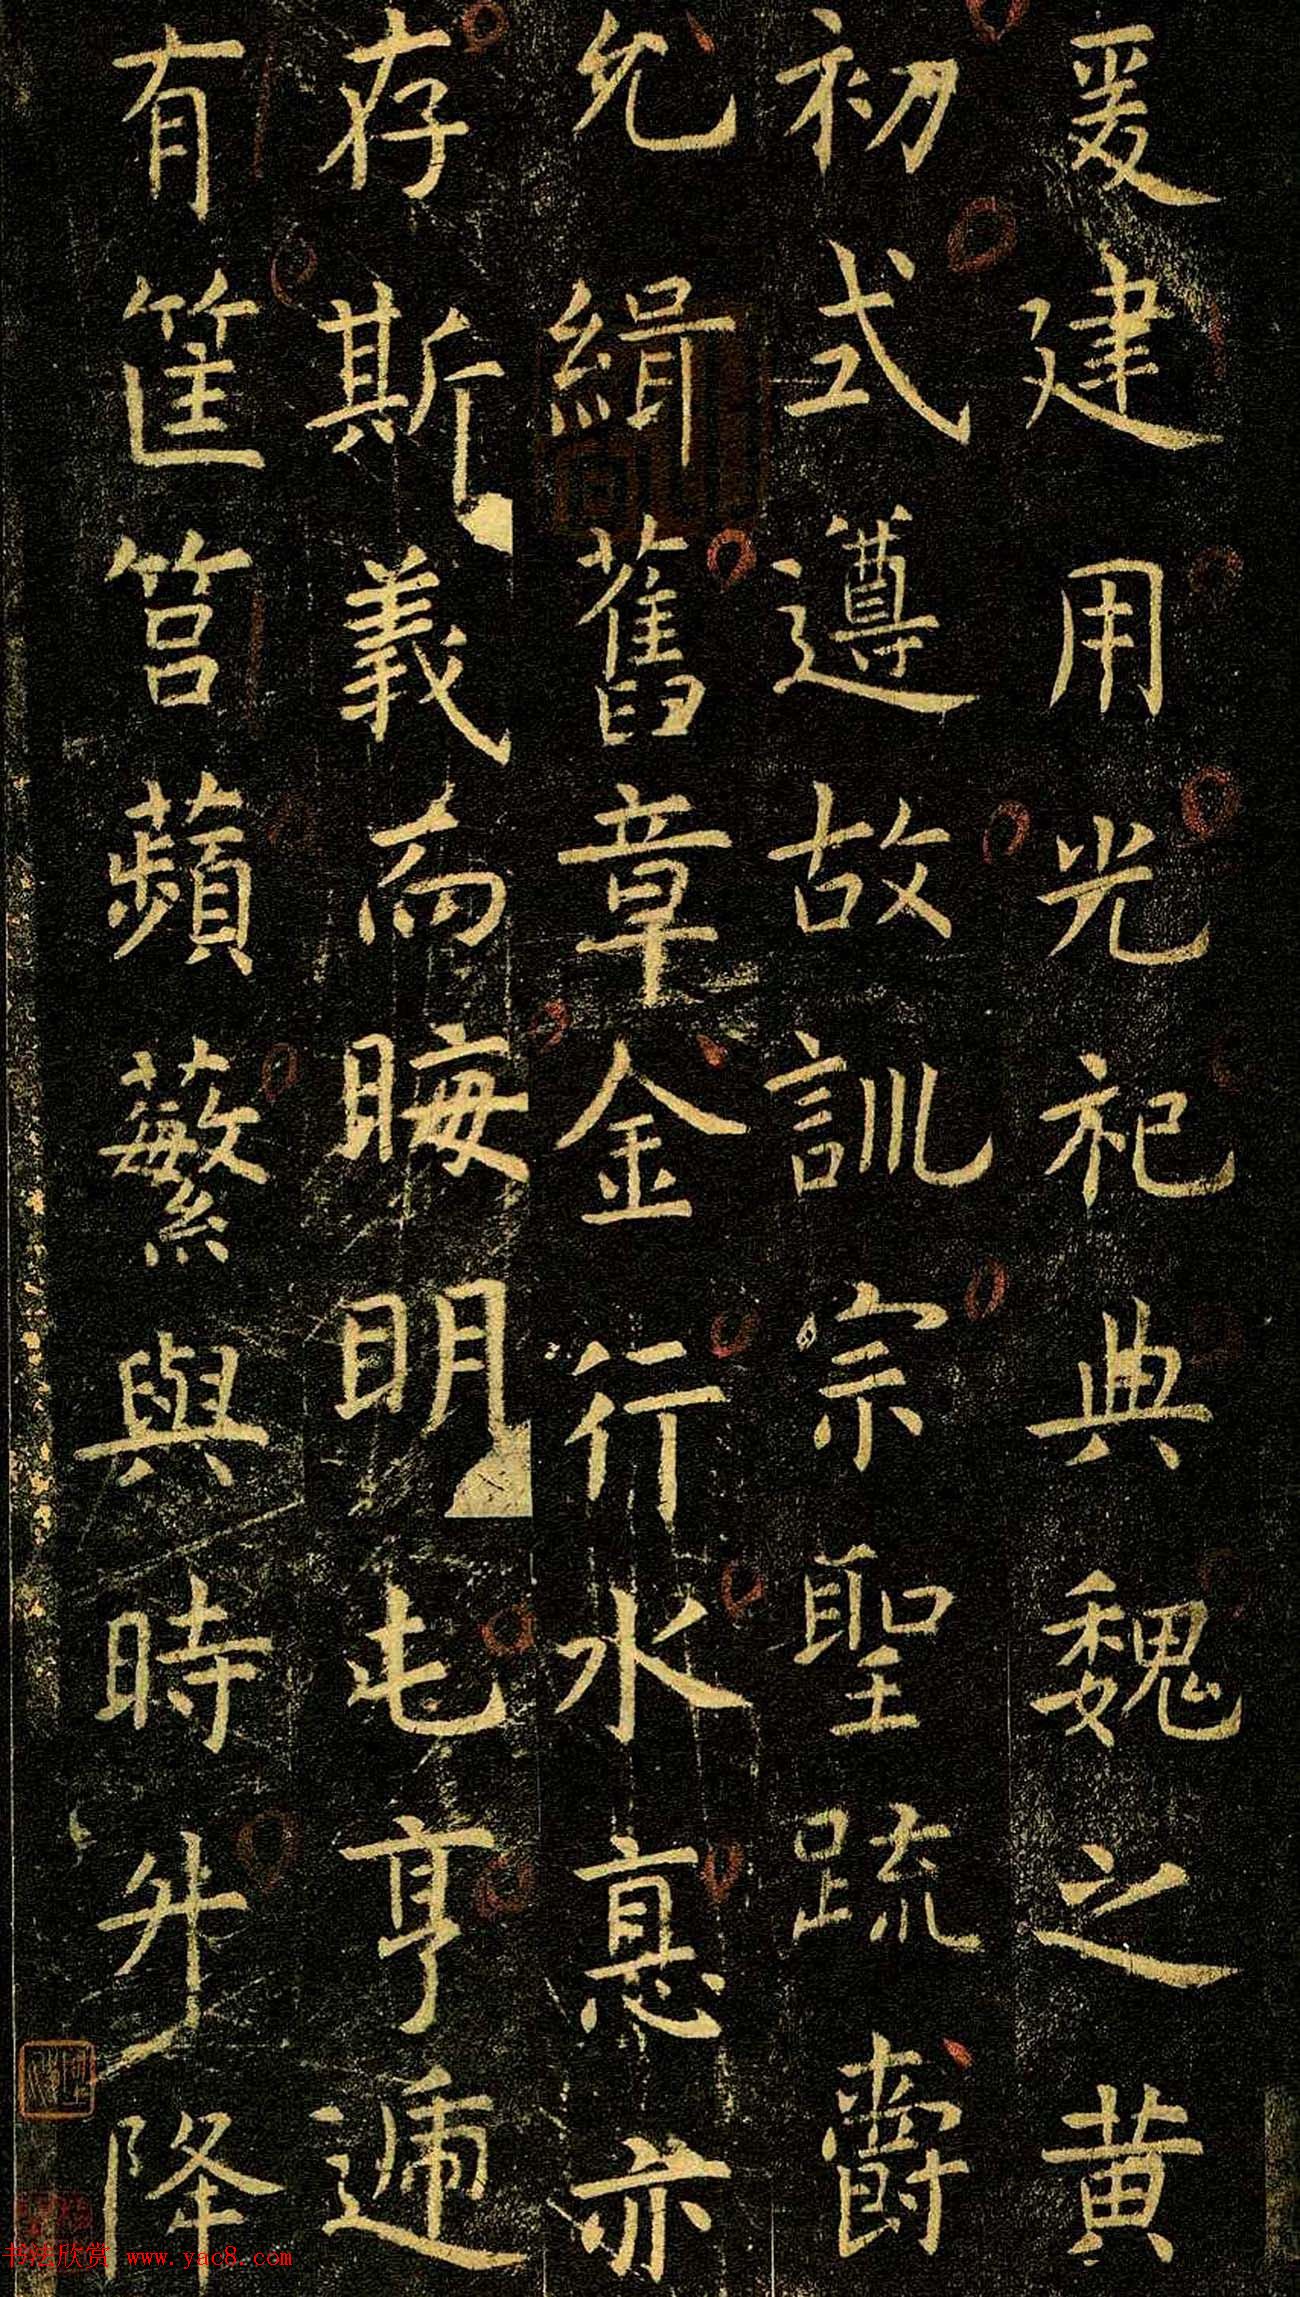 爰建用光祀典魏之黄
初式遵故訓宗聖疏爵
允緝舊章金行水惪亦
存斯義而晦明屯亨遞
有筐筥蘋蘩與時升降
书法欣赏 www.yac8.com